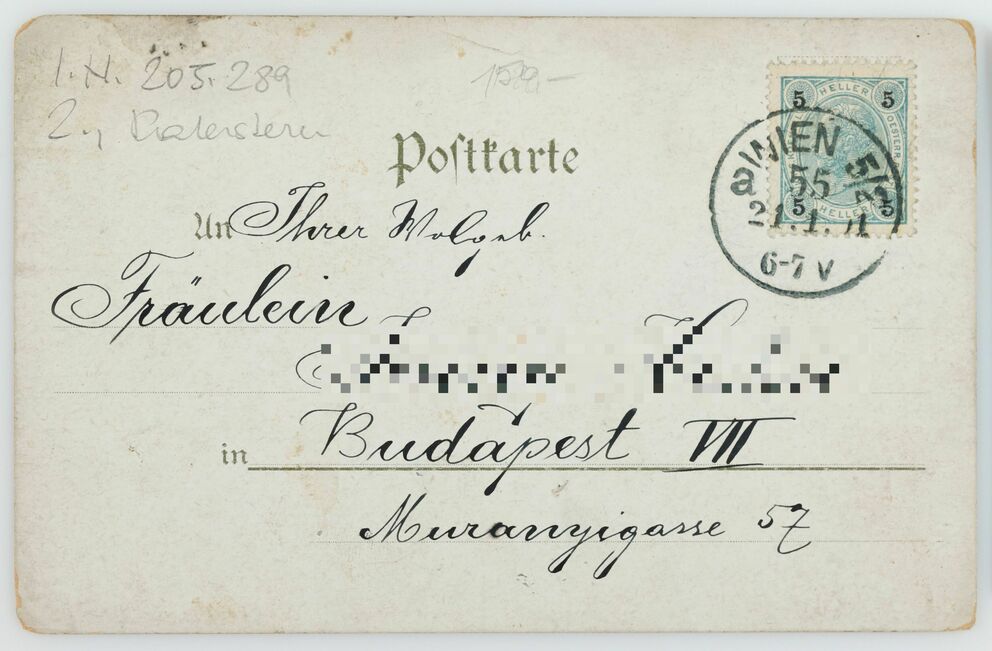 I.N. 205.289
2., Praterstern
Postkarte
5 HELLER 5
5 HELLER 5
WIEN 5/2
a 55
21.1.
6-7 V
An Ihrer Wolgeb.
Fräulein
in Budapest VII
Muranyigasse 57